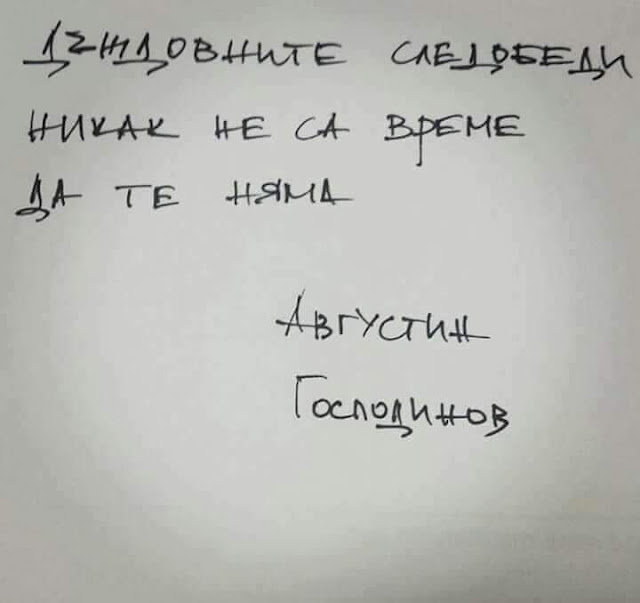 ДЪЖДОВНИТЕ СЛЕДОБЕДИ
НИКАК НЕ СА ВРЕМЕ
ДА ТЕ НЯМА
Августин
Господинов